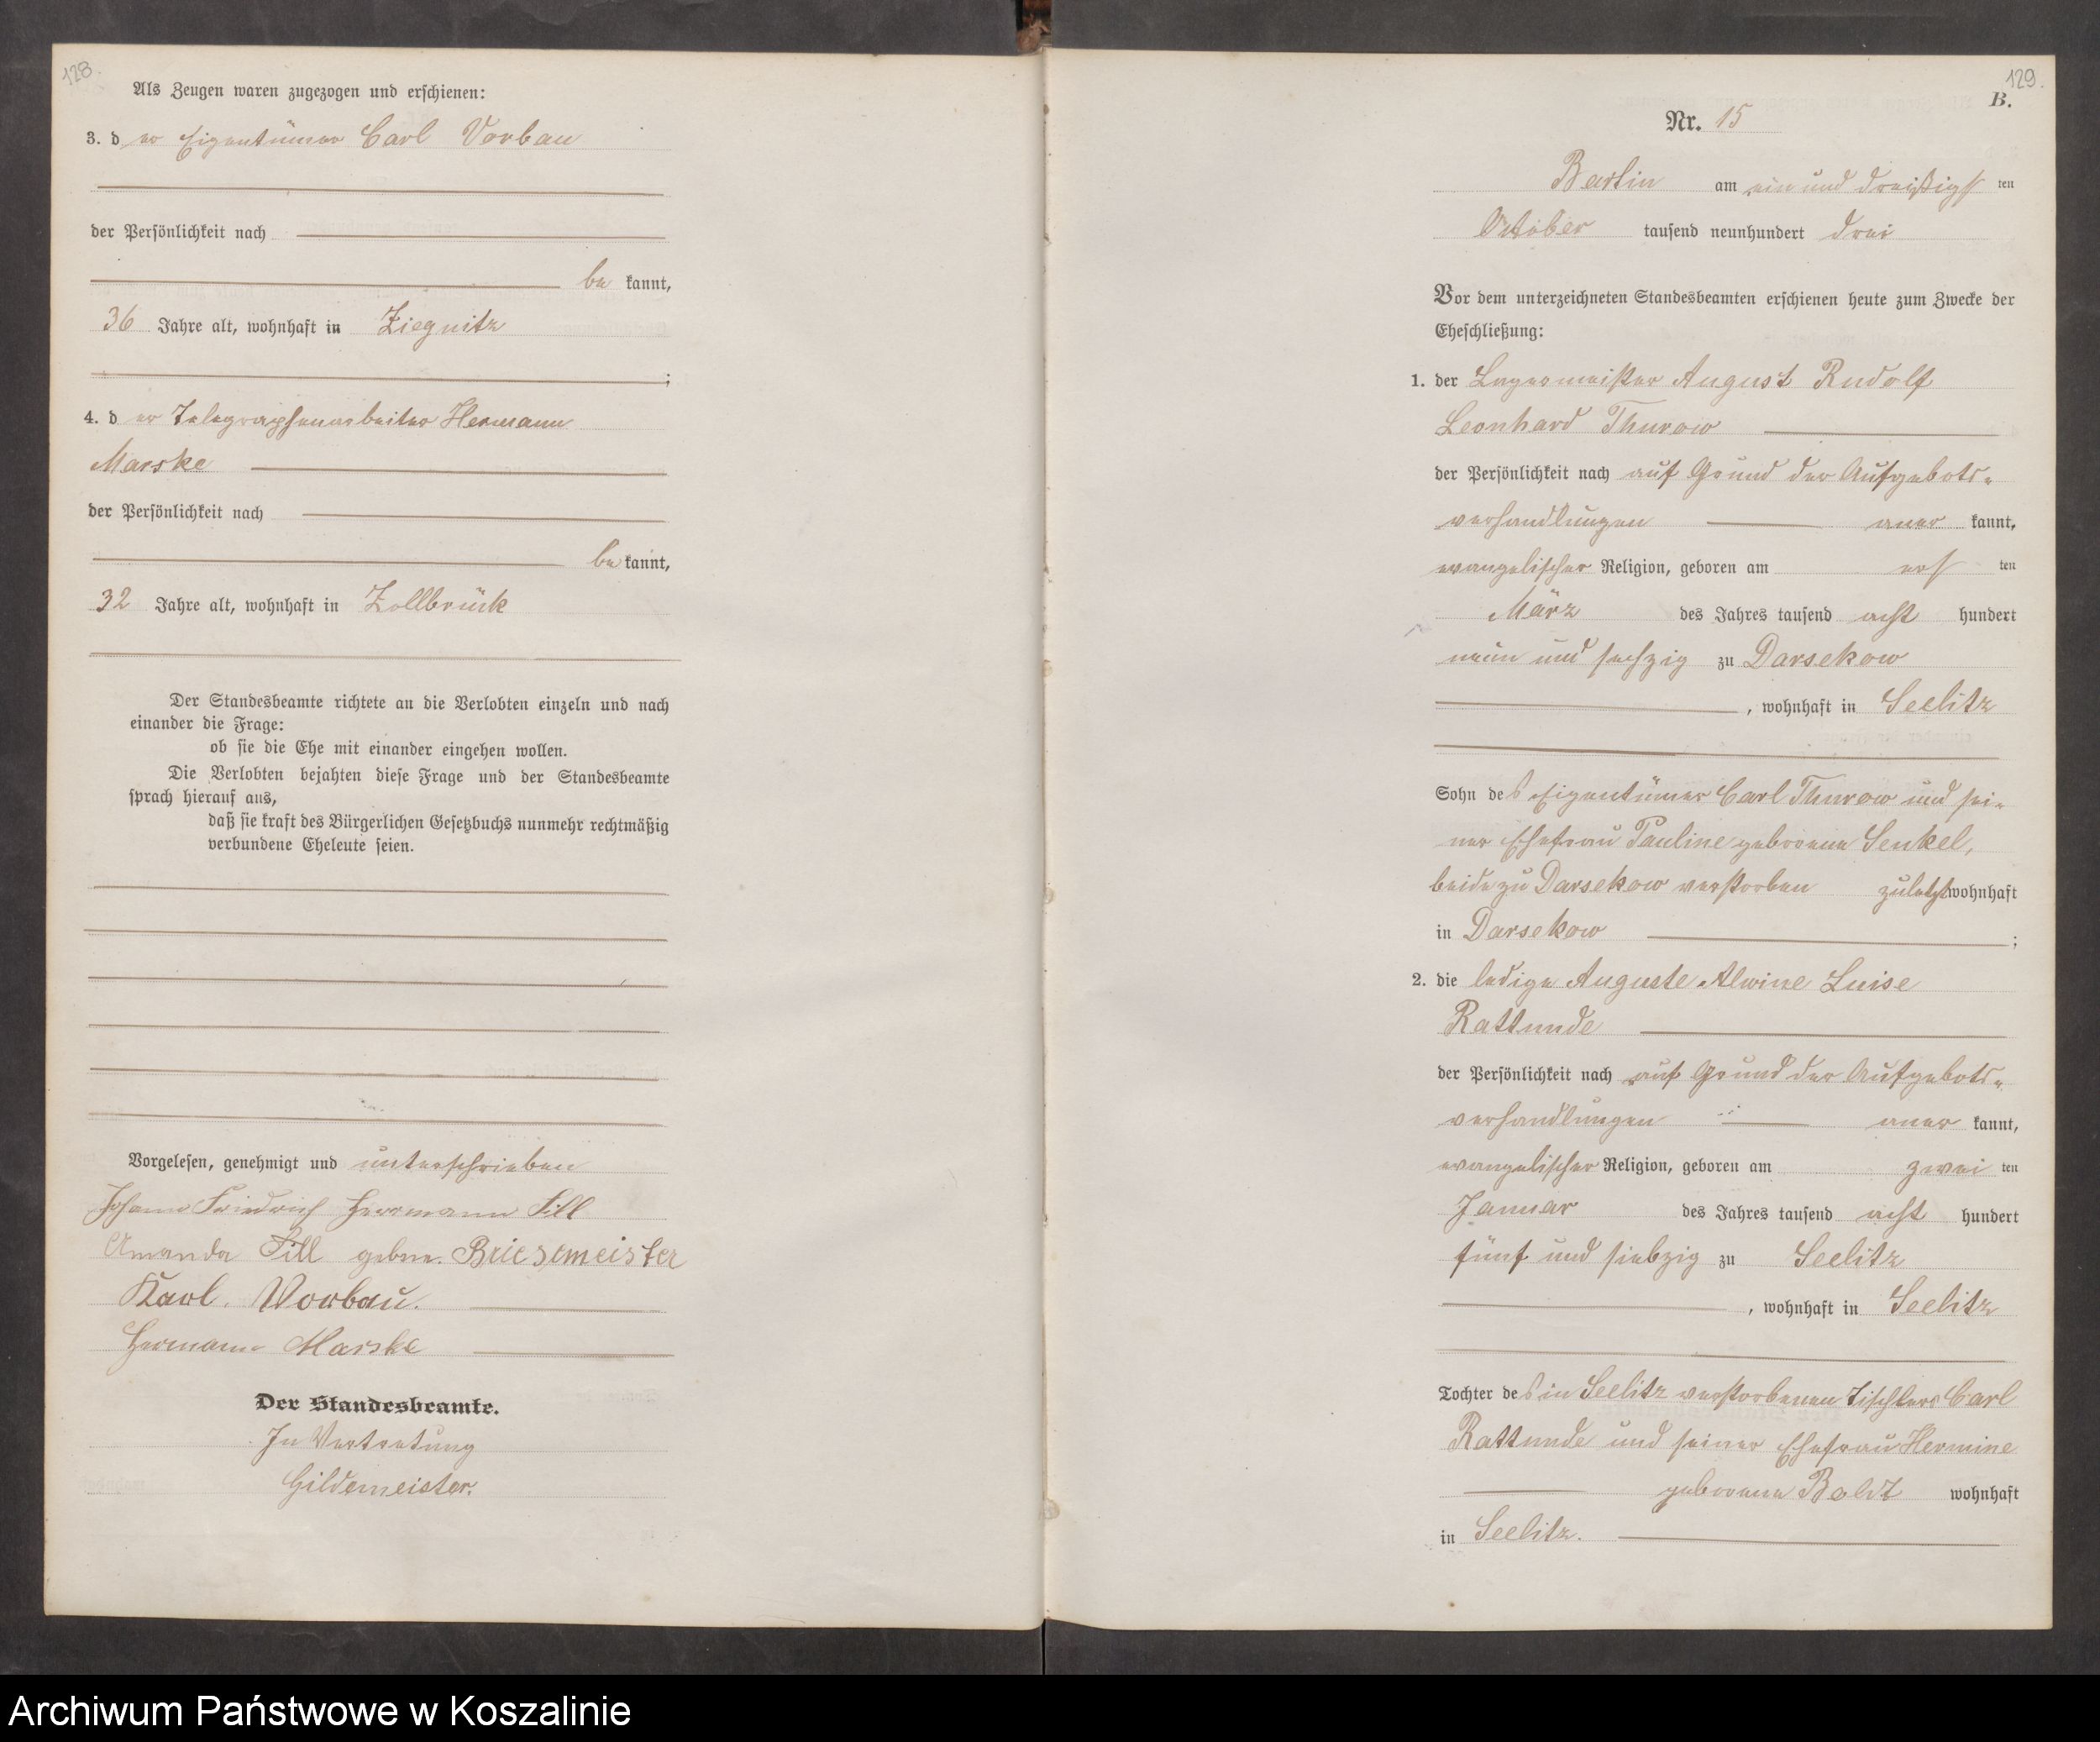 128.
Als Zeugen waren zugezogen und erschienen:
3. der Eigentümer Carl Vorbau
der Persönlichkeit nach
be kannt,
36 Jahre alt, wohnhaft in Ziegnitz
;
4. der Telegraphenarbeiter Hermann
Marske
der Persönlichkeit nach
be kannt,
32 Jahre alt, wohnhaft in Zollbrück
Der Standesbeamte richtete an die Verlobten einzeln und nach
einander die Frage:
ob sie die Ehe mit einander eingehen wollen.
Die Verlobten bejahten diese Frage und der Standesbeamte
sprach hierauf aus,
daß sie kraft des Bürgerlichen Gesetzbuchs nunmehr rechtmäßig
verbundene Eheleute seien.
Vorgelesen, genehmigt und unterschrieben
Johann Friedrich Herrmann Sill
Amanda Sill gebne. Briesemeister
Karl. Vorbau.
Hermann Marske
Der Standesbeamte.
In Vertretung
Gildemeister.
129.
B.
Nr. 15
Bartin am ein und dreißigsten
October tausend neunhundert drei
Vor dem unterzeichneten Standesbeamten erschienen heute zum Zwecke der
Eheschließung:
1. der Lagermeister August Rudolf
Leonhard Thurow
der Persönlichkeit nach auf Grund der Aufgebots-
verhandlungen aner kannt,
evangelischer Religion, geboren am ersten
März des Jahres tausend acht hundert
neun und sechzig zu Darsekow
, wohnhaft in Seelitz
Sohn des Eigentümer Carl Thurow und sei-
ner Ehefrau Pauline geborene Senkel,
beide zu Darsekow verstorben zuletzt wohnhaft
in Darsekow ;
2. die ledige Auguste Alwine Luise
Rattunde
der Persönlichkeit nach auf Grund der Aufgebots-
verhandlungen aner kannt,
evangelischer Religion, geboren am zwei ten
Januar des Jahres tausend acht hundert
fünf und siebzig zu Seelitz
, wohnhaft in Seelitz
Tochter des in Seelitz verstorbenen Tischlers Carl
Rattunde und seiner Ehefrau Hermine
geborene Boldt wohnhaft
in Seelitz.
Archiwum Państwowe w Koszalinie